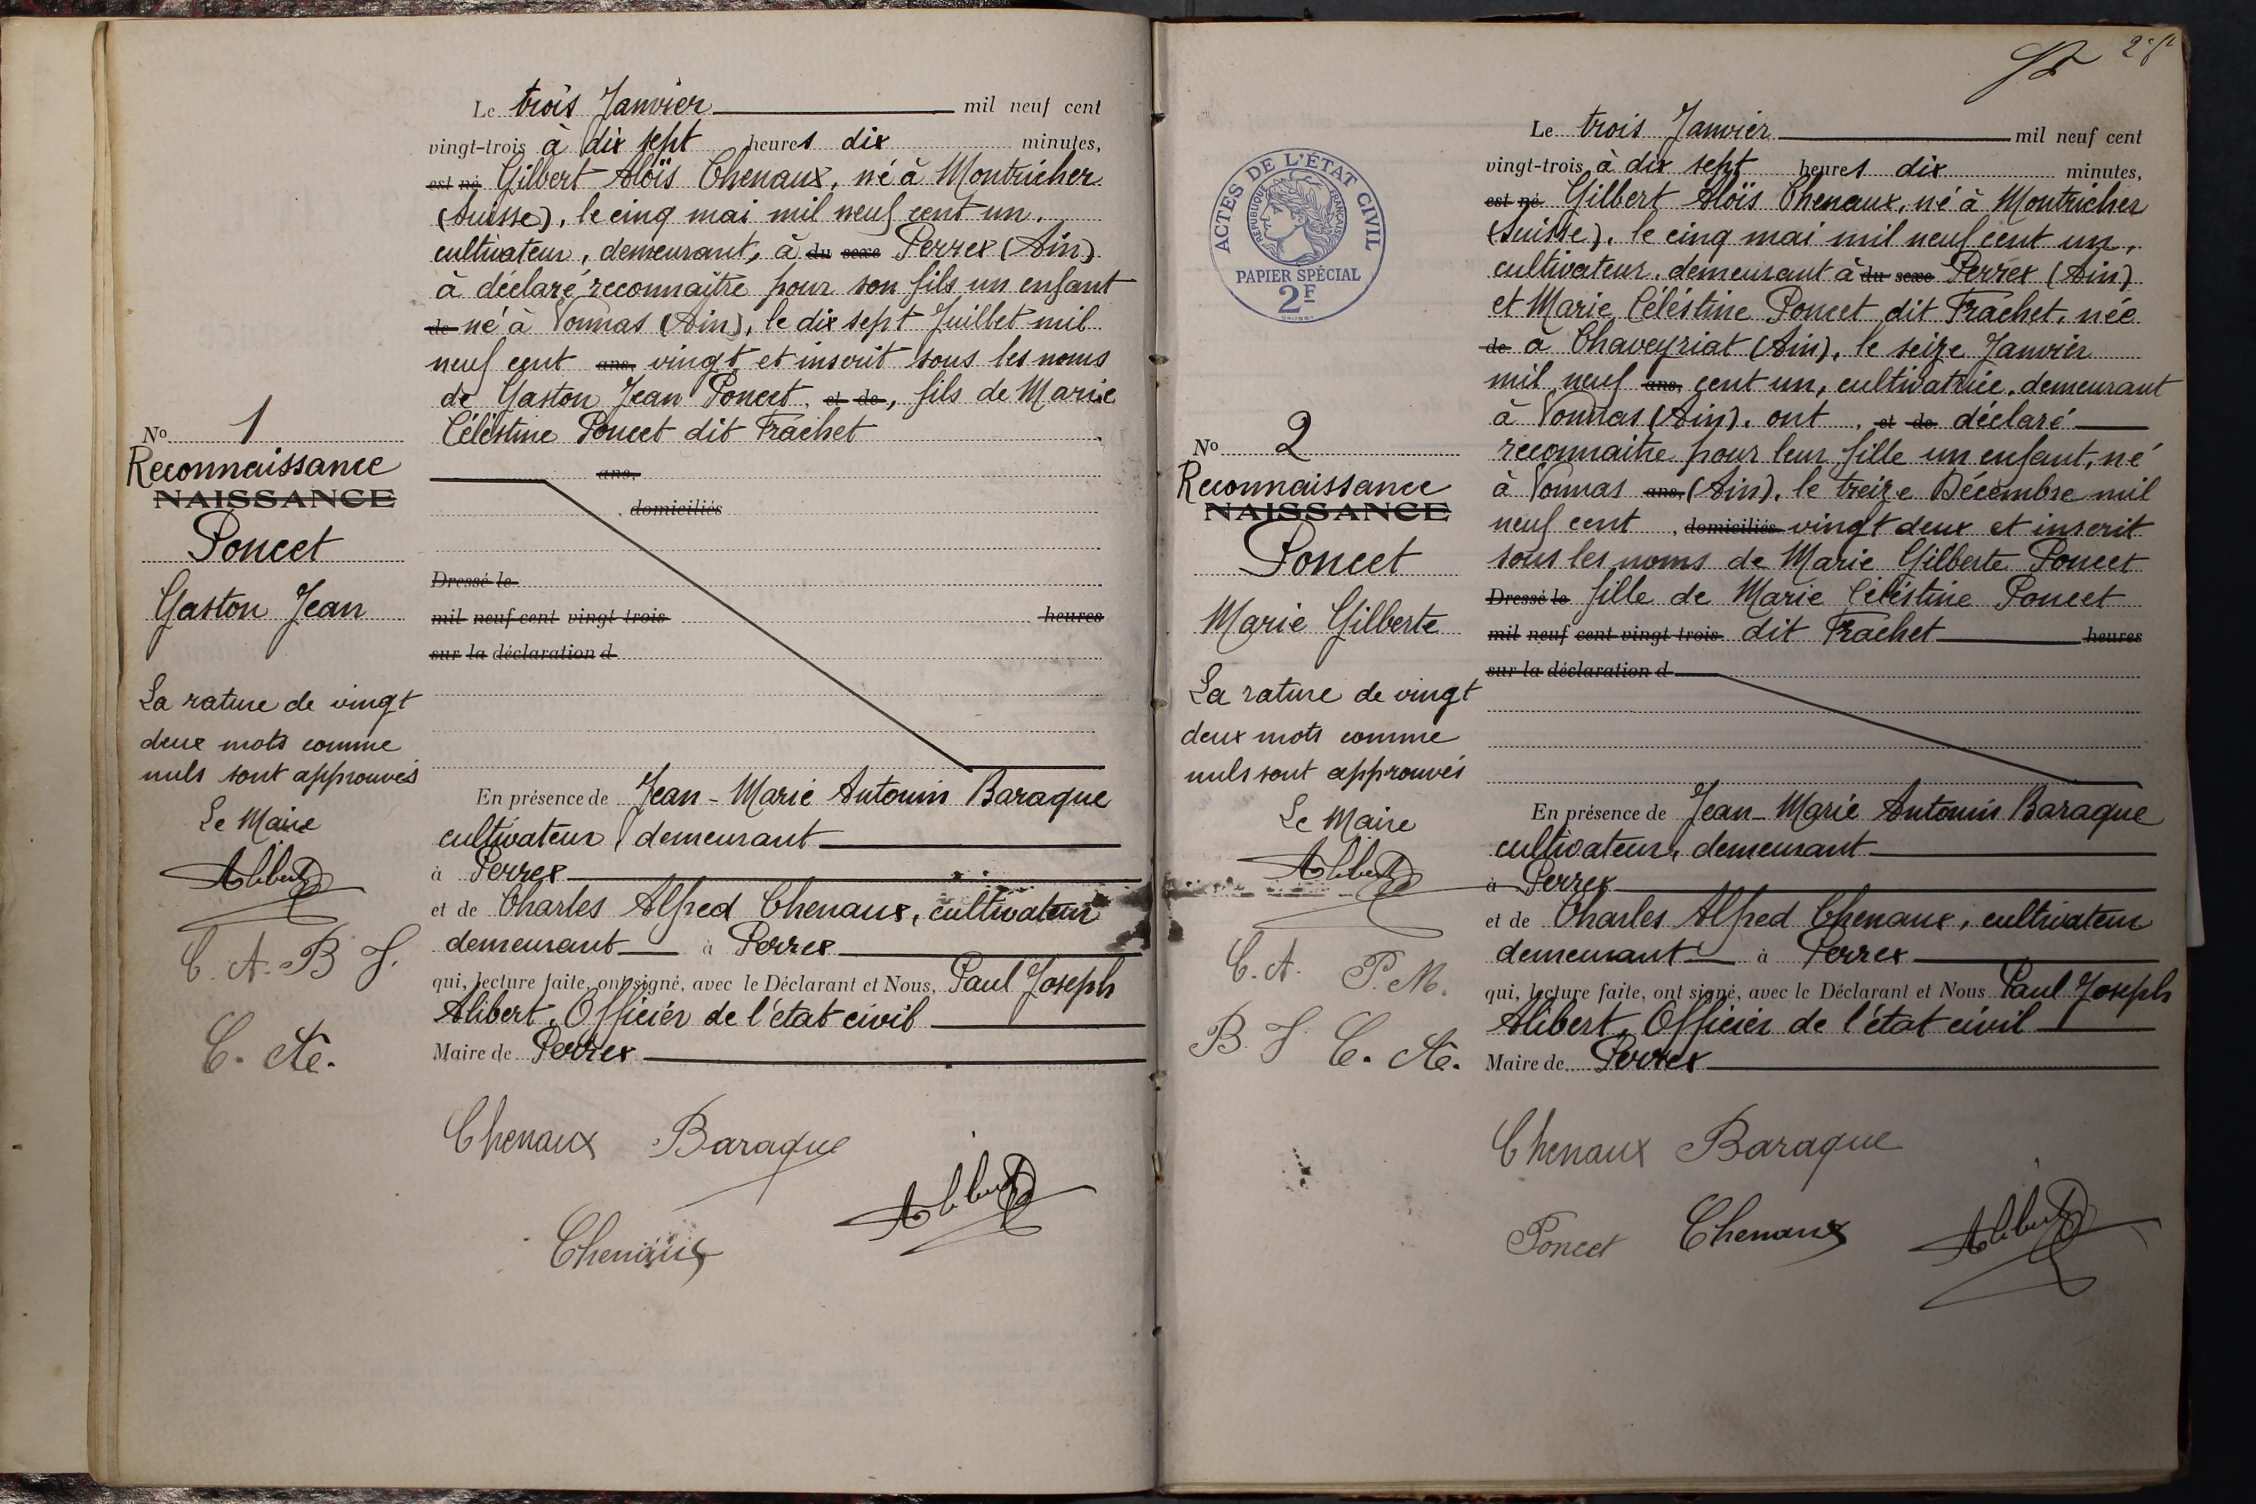 Le trois Janvier mil neuf cent
vingt-trois à dix sept heures dix minutes,
est né Gilbert Aloïs Chenaux, né à Montricher
(Suisse), le cinq mai mil neuf cent un,
cultivateur, demeurant, à du sexe Perrex (Ain)
à déclaré reconnaître pour son fils un enfant
de né à Vonnas (Ain), le dix sept Juillet mil
neuf cent ans, vingt et inscrit sous les noms
de Gaston Jean Poncet, et de, fils de Marie
Céléstine Poncet dit Frachet
ans,
, domiciliés
Dressé le
mil neuf cent vingt trois heures
sur la déclaration d
En présence de Jean-Marie Antonin Baraque
cultivateur, demeurant
à Perrex
et de Charles Alfred Chenaux, cultivateur
demeurant à Perrex
qui, lecture faite, ont signé, avec le Déclarant et Nous, Paul Joseph
Alibert, Officier de l'état civil
Maire de Perrex
Chenaux Baraque
Chenaux Alibert
No 1
Reconnaissance
NAISSANCE
Poncet
Gaston Jean
La rature de vingt
deux mots comme
nuls sont approuvés
Le Maire
Alibert
C. A. B J.
C. Ae.
ACTES DE L'ÉTAT CIVIL
RÉPUBLIQUE FRANÇAISE
PAPIER SPÉCIAL
2F
Le trois Janvier mil neuf cent
vingt-trois à dix sept heures dix minutes,
est né Gilbert Aloïs Chenaux, né à Montricher
(Suisse), le cinq mai mil neuf cent un,
cultivateur, demeurant à du sexe Perrex (Ain)
et Marie Céléstine Poncet dit Frachet, née
de à Chaveyriat (Ain), le seize Janvier
mil neuf ans, cent un, cultivatrice, demeurant
à Vonnas (Ain), ont, et de déclaré
reconnaitre pour leur fille un enfant, né
à Vonnas ans, (Ain), le treize Décembre mil
neuf cent , domiciliés vingt deux et inscrit
sous les noms de Marie Gilberte Poncet
Dressé le fille de Marie Céléstine Poncet
mil neuf cent vingt trois dit Frachet heures
sur la déclaration d
En présence de Jean-Marie Antonin Baraque
cultivateur, demeurant
à Perrex
et de Charles Alfred Chenaux, cultivateur
demeurant à Perrex
qui, lecture faite, ont signé, avec le Déclarant et Nous Paul Joseph
Alibert, Officier de l'état civil
Maire de Perrex
Chenaux Baraque
Poncet Chenaux Alibert
No 2
Reconnaissance
NAISSANCE
Poncet
Marie Gilberte
La rature de vingt
deux mots comme
nuls sont approuvés
Le Maire
Alibert
C. A. P. M.
B. J C. Ae.